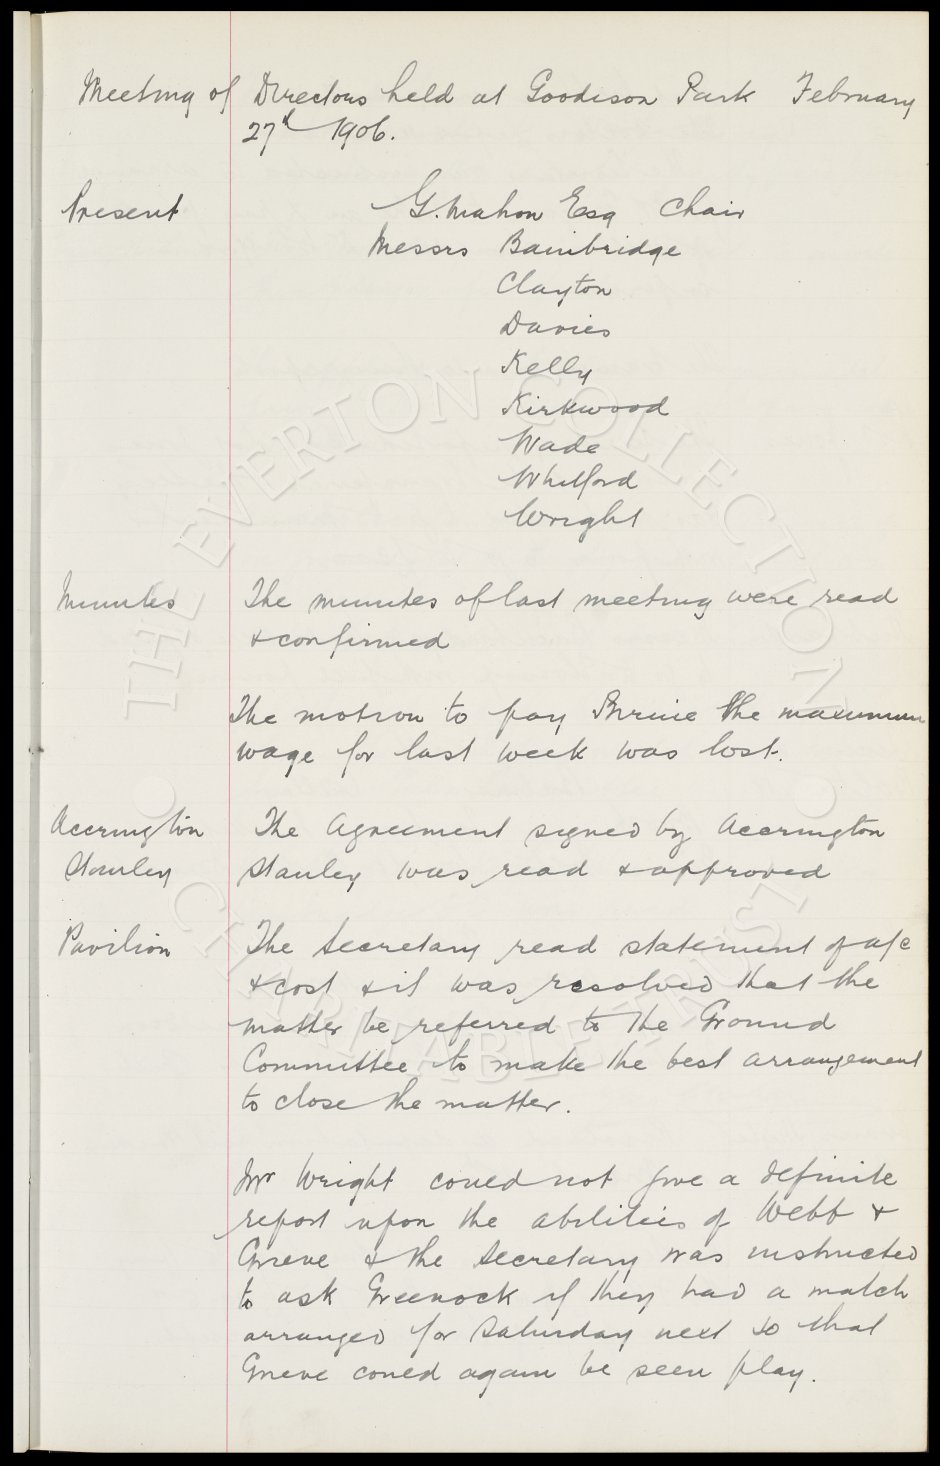 Meeting of Directors held at Goodison Park February
27th 1906.
Present G. Mahon Esq Chair
Messrs Bainbridge
Clayton
Davies
Kelly
Kirkwood
Wade
Whitford
Wright
Minutes The minutes of last meeting were read
& confirmed
The motion to pay the maximum
wage for last week was lost.
Accrington The Agreement signed by Accrington
Stanley Stanley was read & approved
Pavilion The Secretary read statement of a/c
& cost & it was resolved that the
matter be referred to the Ground
Committee to make the best arrangement
to close the matter.
Mr Wright could not give a definite
report upon the abilities of Webb &
Greve & the Secretary was instructed
to ask Greenock if they had a match
arranged for Saturday next so that
Greve could again be seen play.
THE EVERTON COLLECTION
CHARITABLE TRUST